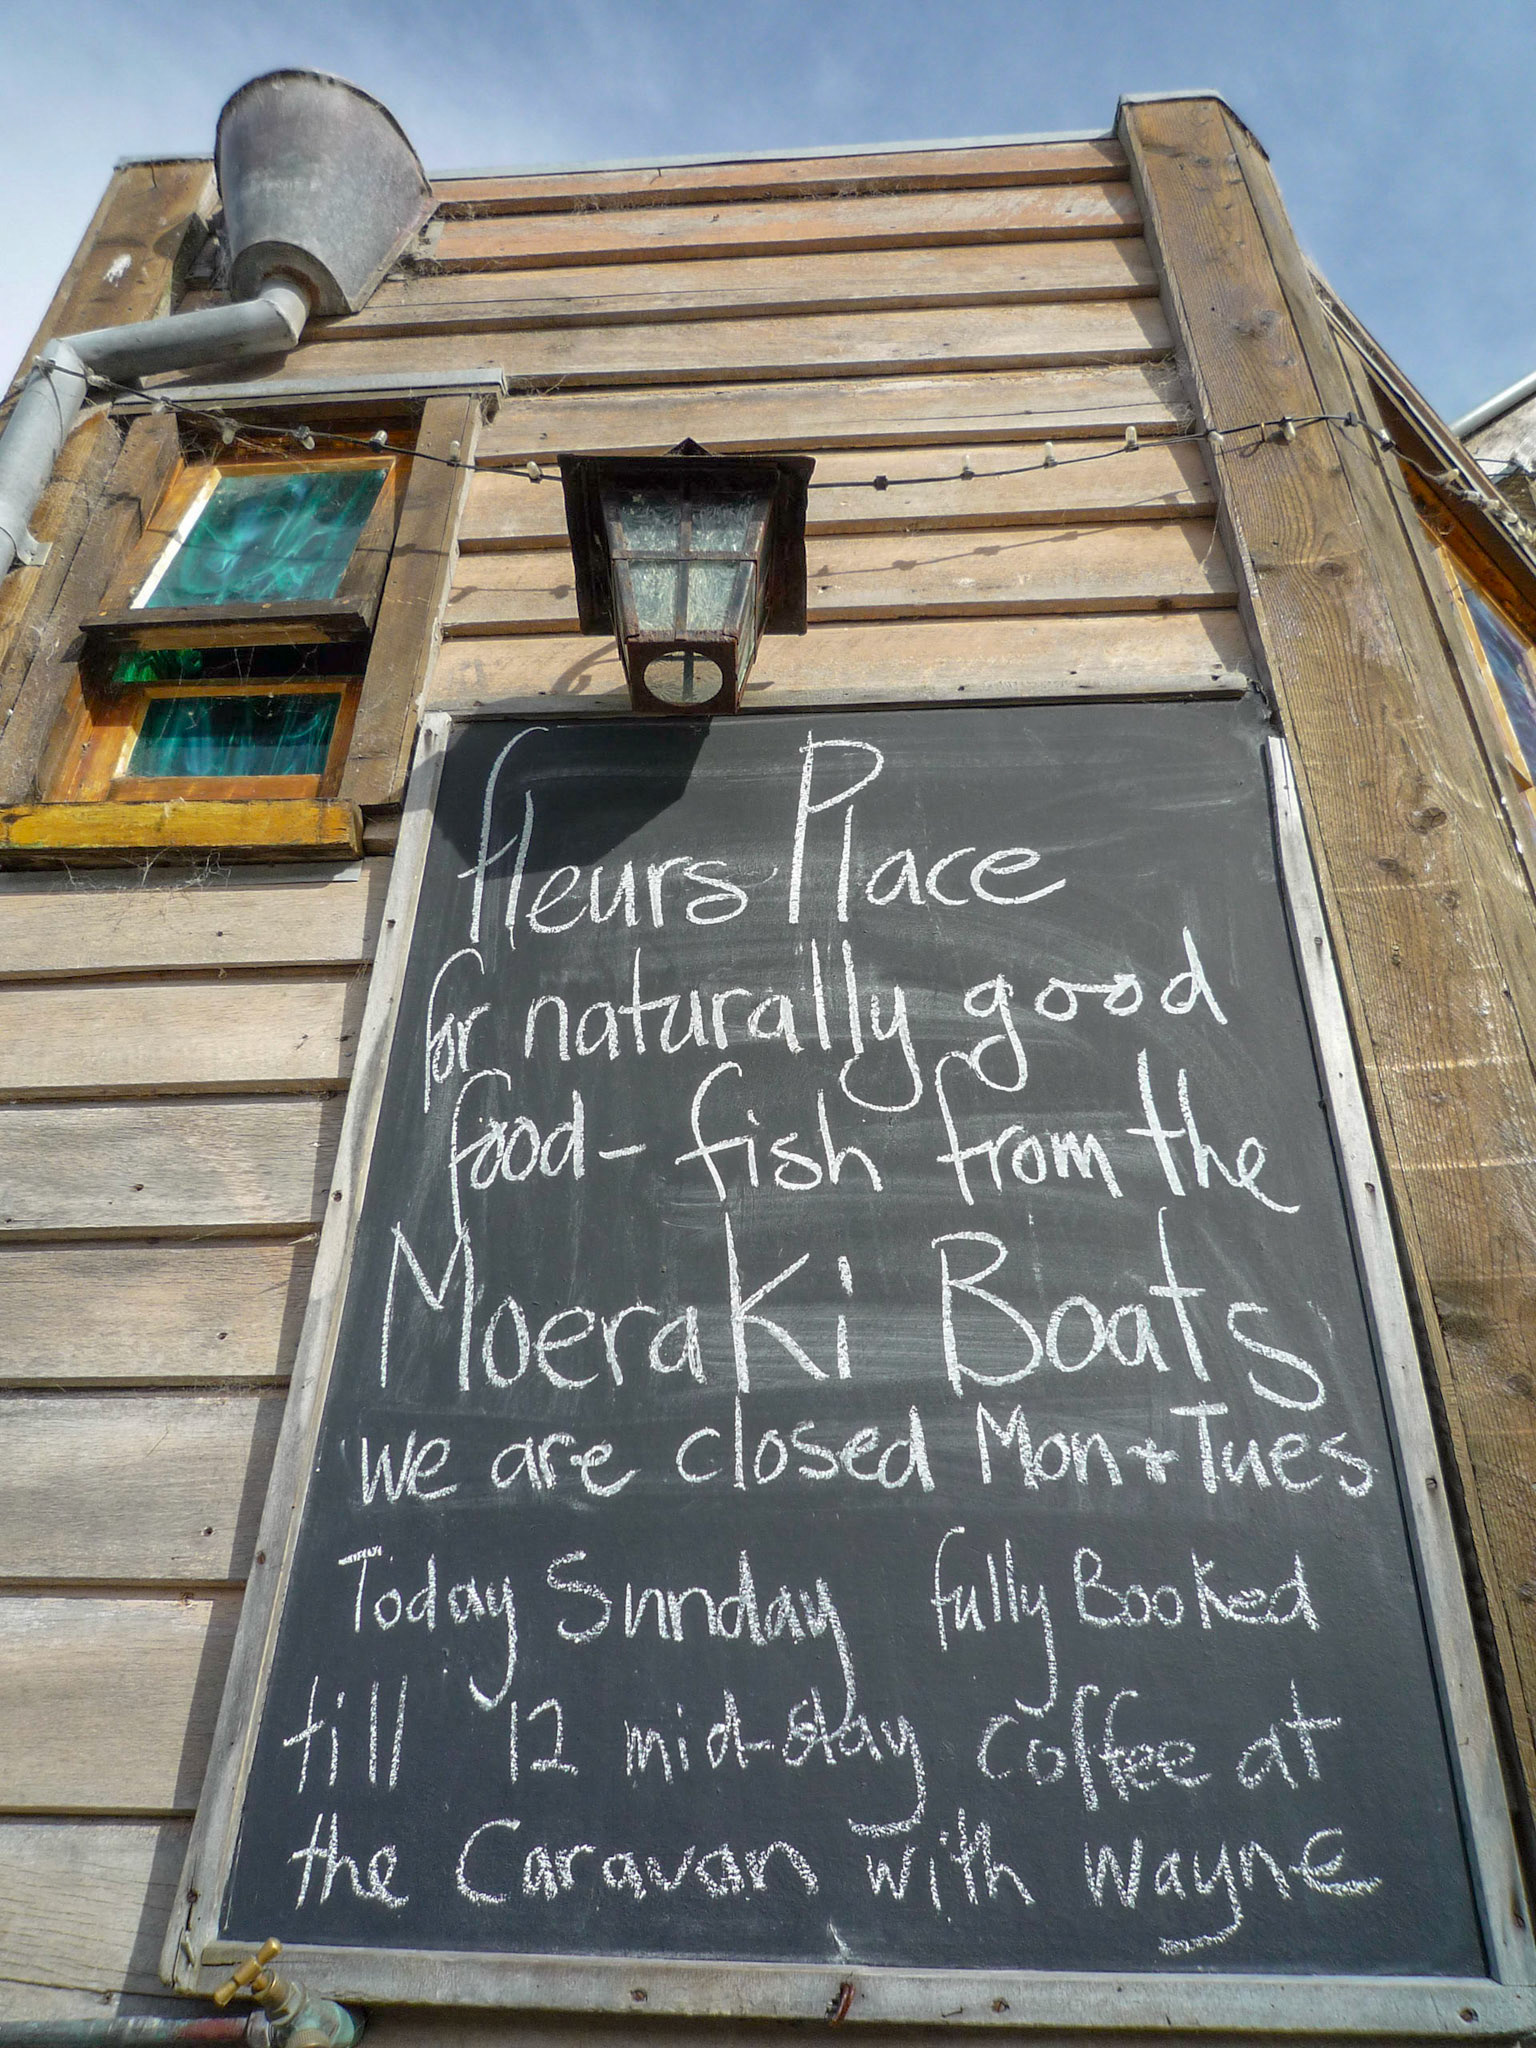 Fleurs Place
for naturally good
food - fish from the
Moeraki Boats
we are closed Mon + Tues
Today Sunday fully Booked
till 12 mid-day coffee at
the Caravan with Wayne